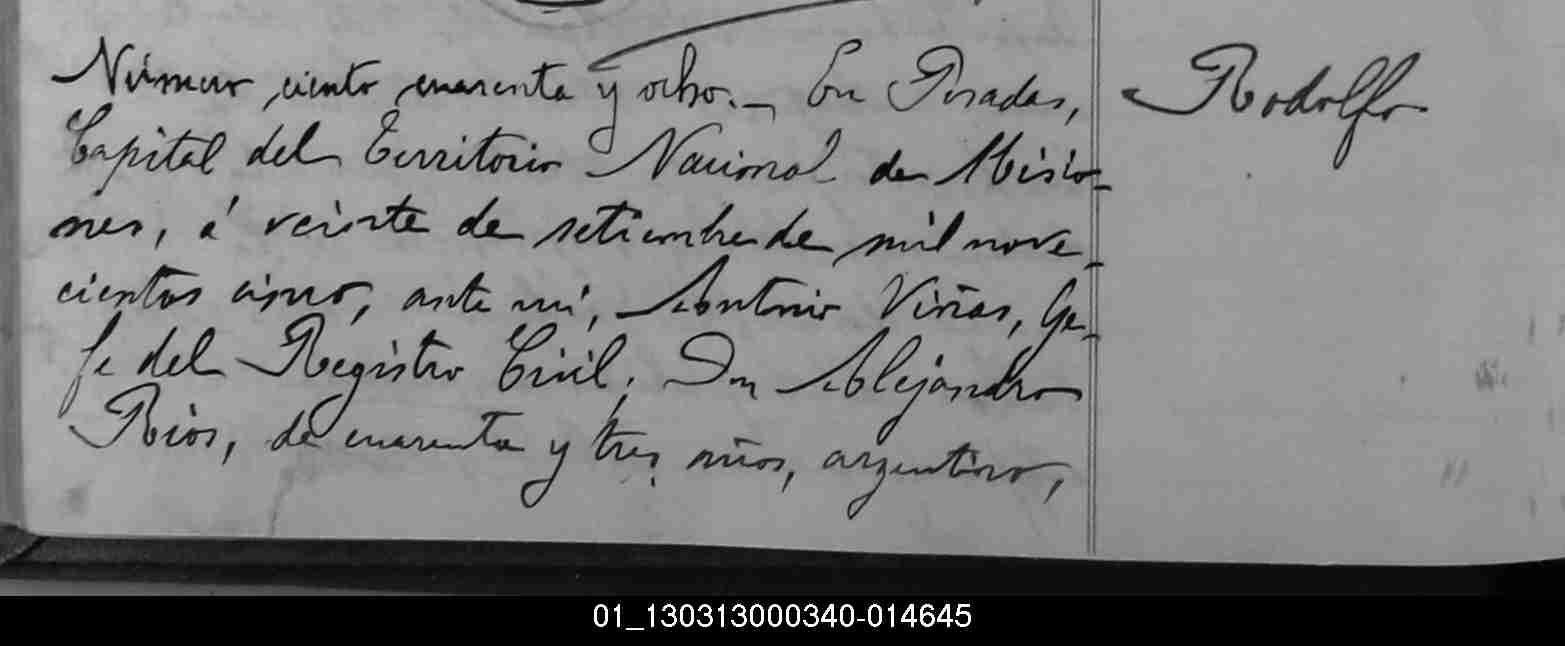 Número ciento cuarenta y ocho._ En Posadas,
Rodolfo
Capital del Territorio Nacional de Misio-
nes, á veinte de setiembre de mil nove-
cientos cinco, ante mi, Antonio Viñas, Ge-
fe del Registro Civil, Don Alejandro
Rios, de cuarenta y tres años, argentino,
01_130313000340-014645